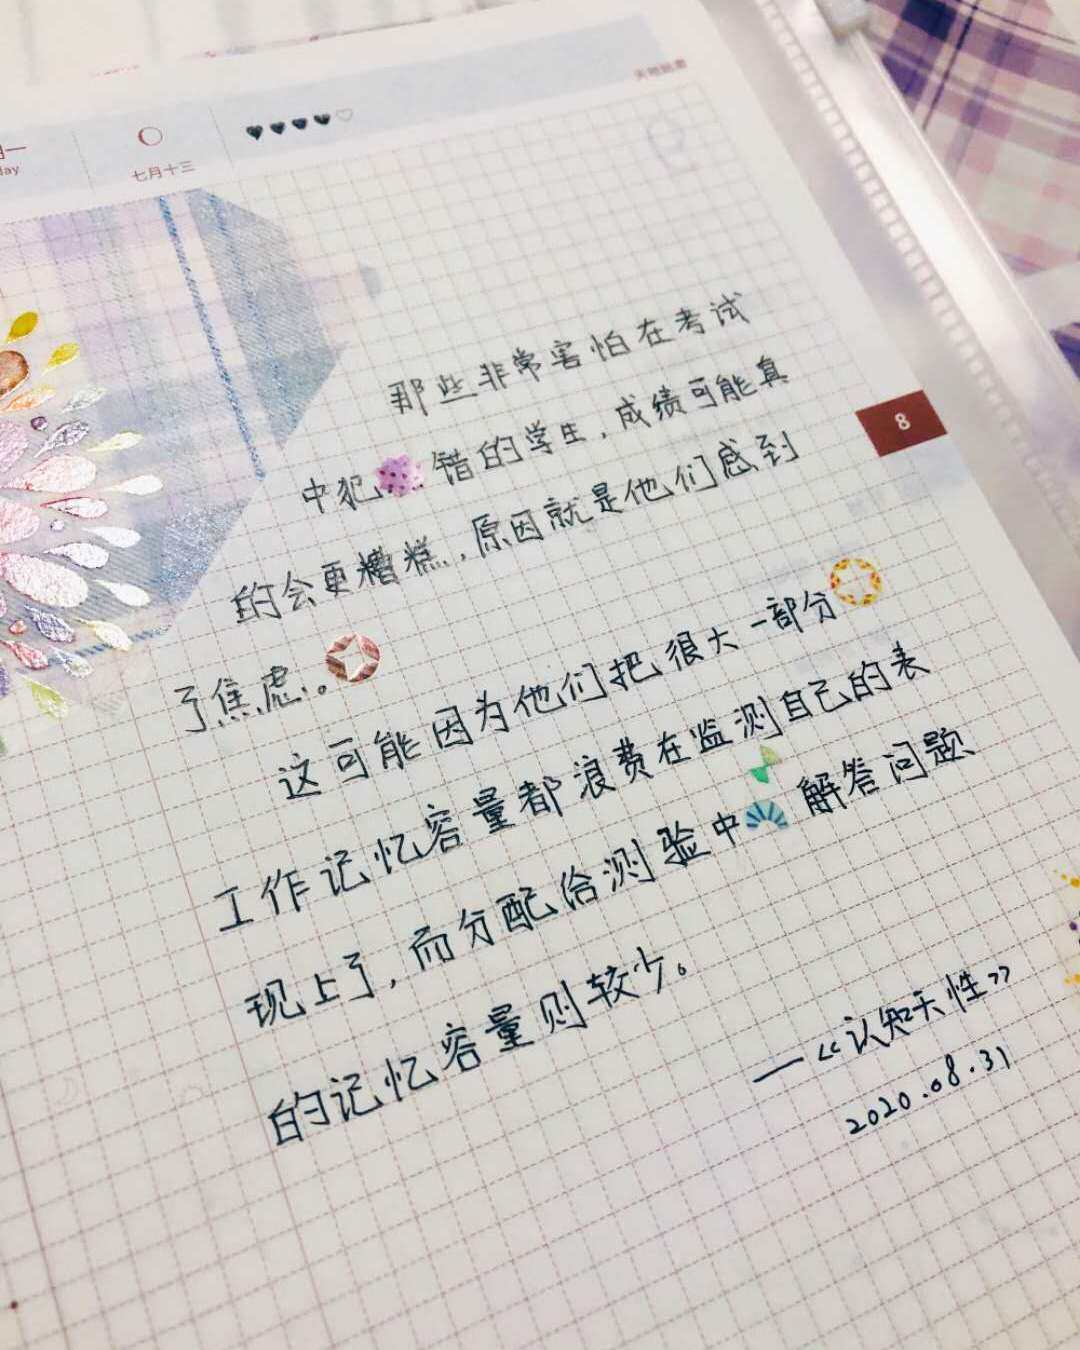 七月十三
8
那些非常害怕在考试
中犯错的学生，成绩可能真
的会更糟糕，原因就是他们感到
了焦虑。
这可能因为他们把很大一部分
工作记忆容量都浪费在监测自己的表
现上了，而分配给测验中解答问题
的记忆容量则较少。
—《认知天性》
2020.08.31